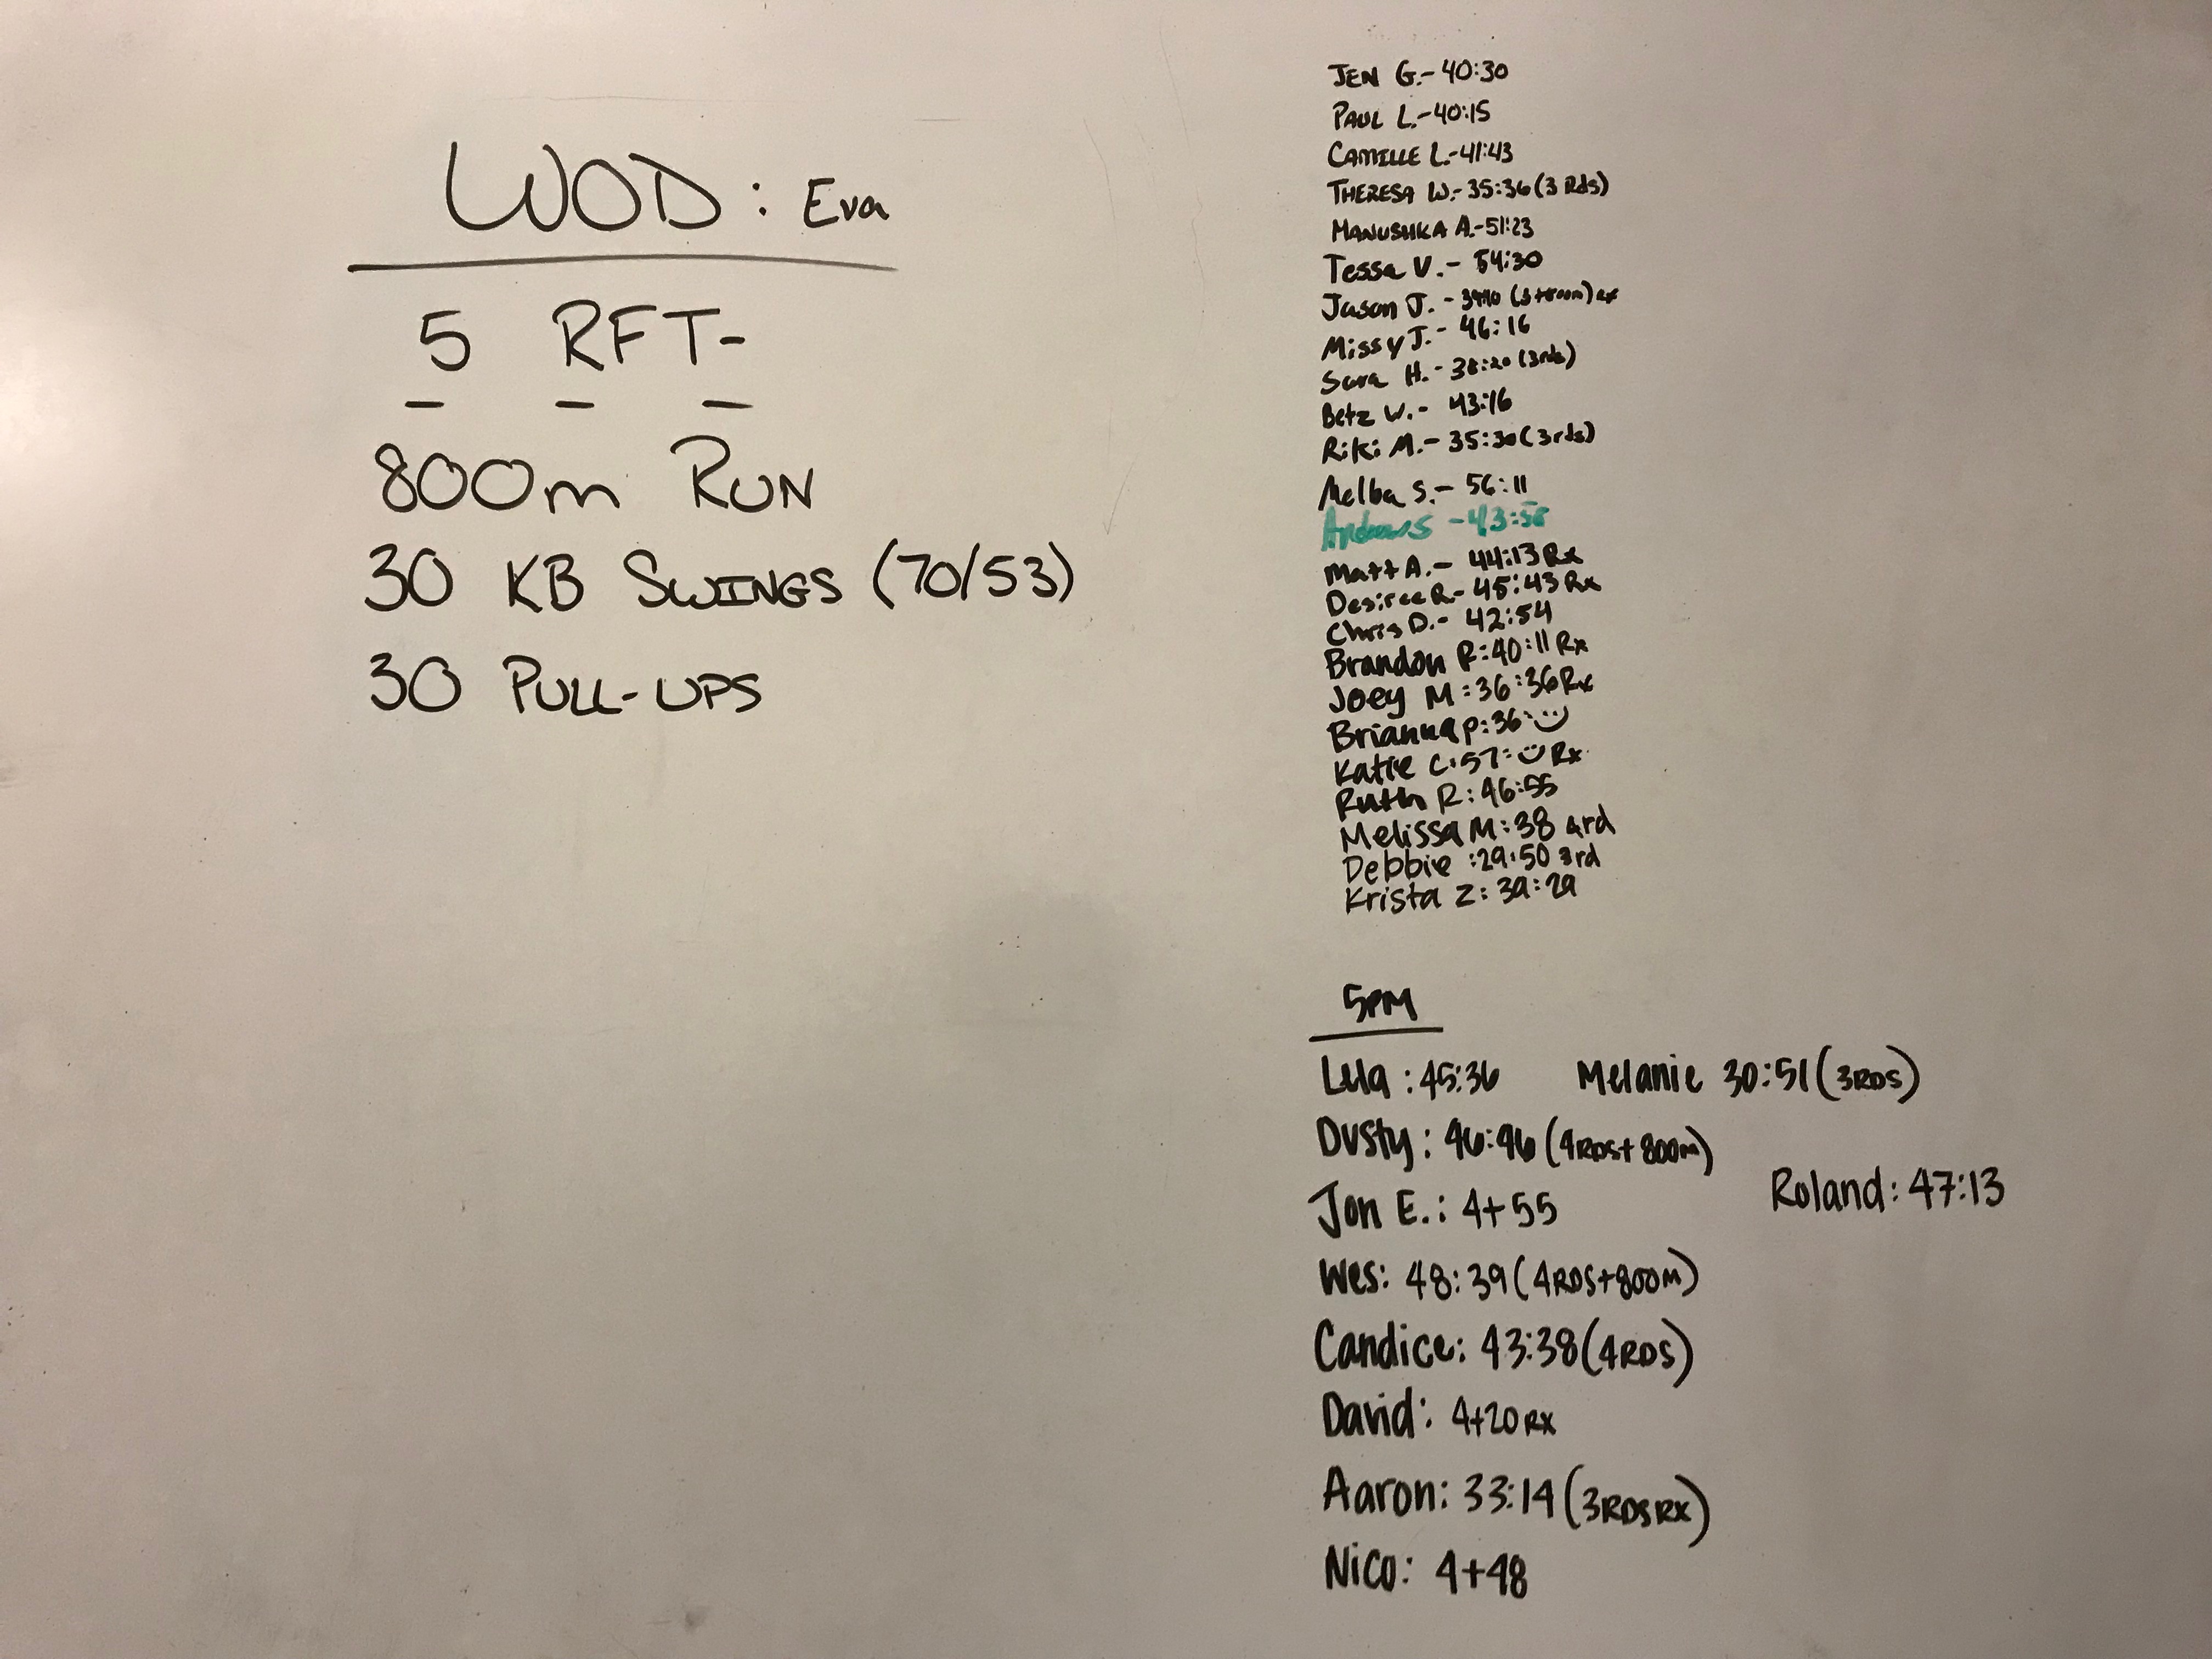 WOD: Eva
5 RFT-
800m RUN
30 KB SWINGS (70/53)
30 PULL-UPS
JEN G.- 40:30
PAUL L.-40:15
CAMILLE L.-41:43
THERESA W.- 35:36 (3 Rds)
MANUSHKA A.-51:23
Tessa V.- 54:30
Jason J. -
Missy J.- 46:16
Sara H.- 38:20 (3rds)
Betz W.- 43:16
Riki M.- 35:30 (3rds)
Melba S.- 56:11
-43:58
Matt A.- 44:13 Rx
Desiree R- 45:43 Rx
Chris D.- 42:54
Brandon R:40:11 Rx
Joey M:36:36 Rx
Brianna P:36:
Katie C:57: Rx
Ruth R:46:55
Melissa M:38 4rd
Debbie :29:50 3rd
Krista Z: 39:29
5PM
Lula :45:36 Melanie 30:51 (3RDS)
Dusty: 46:46 (4RDS+800M)
Roland: 47:13
Jon E.: 4+55
Wes: 48:39 (4RDS+800M)
Candice: 43:38 (4RDS)
David: 4+20 RX
Aaron: 33:14 (3RDS RX)
Nico: 4+48